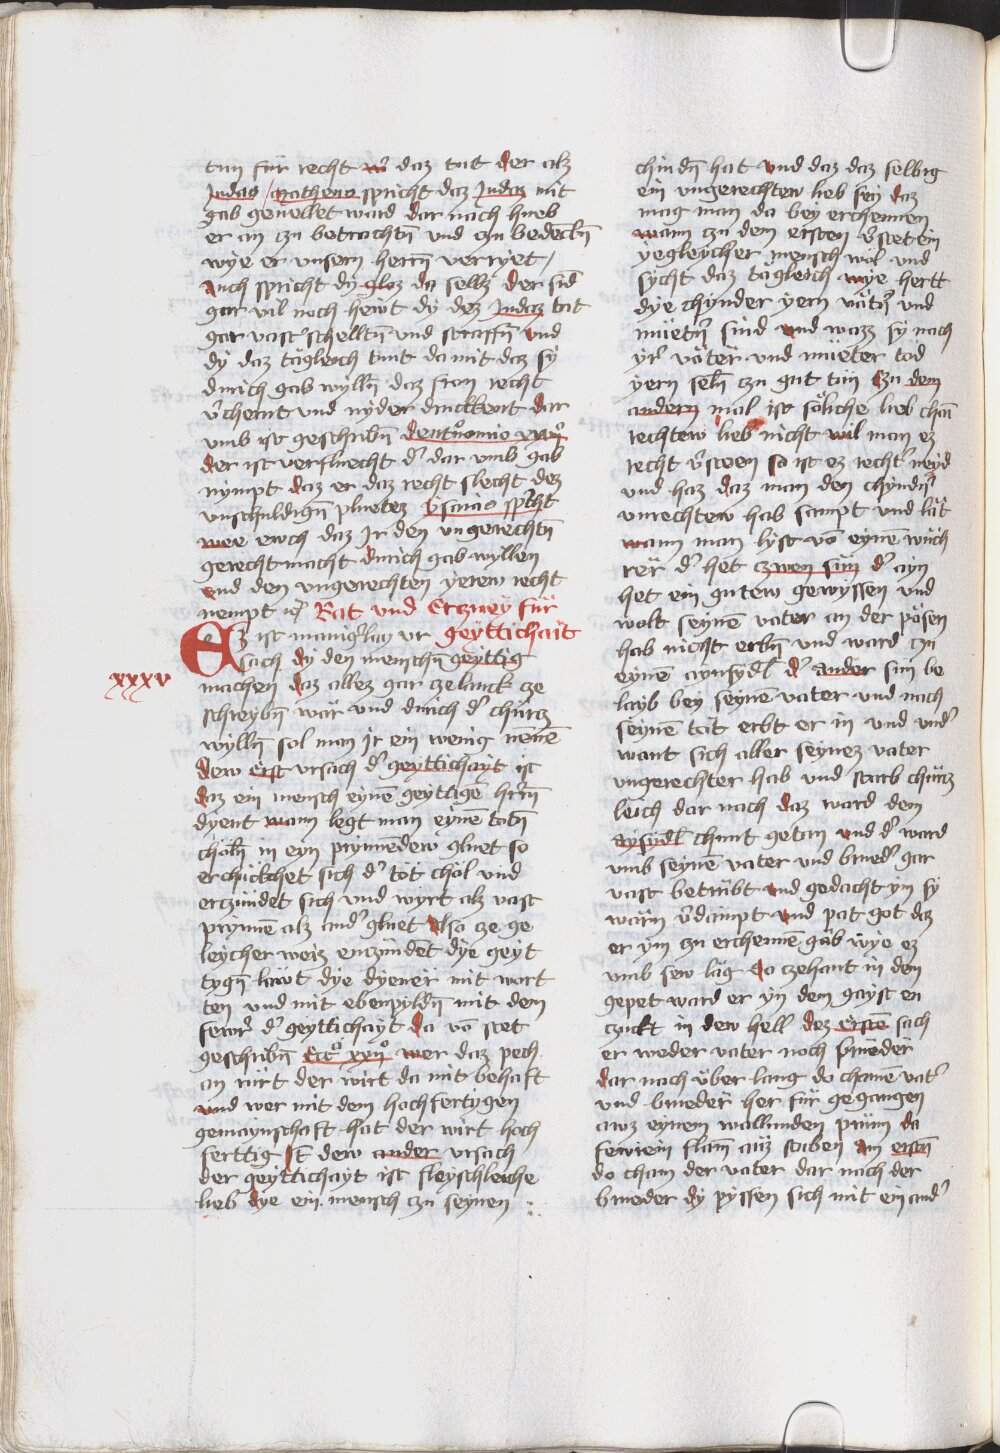 tun für recht wer daz tat der alz
Judas / Matheus spricht daz Judaz mit
gab geuellet ward dar nach hueb
er an czu betrachtn̄ vnd czu bedenckn̄
wye er vnsern herrn̄ verryet /
auch spricht dy gloz da selbz der sind
gar vil noch hewt dy dez Judaz tat
gar vast scheltn̄ vnd straffn̄ vnd
dy daz tägleich tuntt da mit daz sy
durich gab wylln̄ daz fron recht
v̄chernt vnd nyder druckhent dar
vmb ist geschribn̄ deutronomio xxvijo
der ist verfluecht der dar vmb gab
nympt daz er daz recht slecht dez
vnschuldign̄ pluetez ysaias spricht
wee ewch daz Jr den vngerechtn̄
gerecht macht durich gab wyllen
vnd den vngerechten yerew recht
nempt Rat vnd Erczney für
Ez ist manigerlay vr geyttichait
sach dy den menschn̄ geyttig
xxxv
machen daz allez gar zelanck ze
schreybn̄ wär vnd durich der chürcz
wylln̄ sol man Jr ein wenig nenē
dew erst vrsach der geyttichayt ist
daz ein mensch eynē geyttigē herrn̄
dyent wann legt man eynē totn̄
choln̄ in eyn prynnēdew gluet so
erchückchet sich der töt chol vnd
erczündet sich vnd wyrt alz vast
prynnē alz ander gluet Also ze ge
leycher weiz enczündet dye geyt
tygn̄ läwt dye dyener mit wart
ten vnd mit ebenpyldn̄ mit dem
fewr der geyttichayt da von stet
geschribn̄ Ecco xxijo wer daz pech
an rürt der wirt da mit behaft
vnd wer mit dem hochfertygen
gemaynschaft hat der wirt hoch
ferttig Jt dew ander vrsach
der geyttichayt ist fleyschleiche
lieb dye ein mensch czu seynen
chindn̄ hat vnd daz daz selbig
ein vngerechtew lieb sey daz
mag man da bey erchennen
wann czu dem ersten v̄stet ein
yegleycher mensch wol vnd
sycht daz tägleich wye hertt
dye chynder yern vätn̄ vnd
müetn̄ sind vnd wazz sy nach
yr väter vnd müeter tod
yern seln̄ czu gut tün Czu dem
andern mal ist söliche lieb chain
rechtew lieb nicht wil man ez
recht v̄steen so ist ez recht neyd
vnd haz daz man den chyndn̄
vnrechtew hab sampt vnd lät
wann man lyst von eynē wuch
rer der het czwen sün der ayn
het ein gutew gewyssen vnd
wolt seynē vater an der pösen
hab nicht erbn̄ vnd ward czu
eynē aynsydl der ander sun be
layb bey seynē vater vnd nach
seynē tod erbt er in vnd vnder
want sich aller seynez vater
vngerechter hab vnd starb chürcz
leich dar nach daz ward dem
aysydl chunt getan vnd der ward
vmb seynē vater vnd brueder gar
vast betrübt vnd gedacht ym sy
wärn v̄dampt vnd pat got daz
er ym czu erchennē gäb wye ez
vmb sew läg do czehant in dem
gepet ward er yn dem gayst en
czuckt in dew hell dez erstē sach
er weder vater noch brueder
dar nach über lang do chamē vater
vnd brueder her für gegangen
awz eynem wallunden prunn da
fewrein flam̄ auz staben am erstn̄
do cham der vater dar nach der
brueder dy pyssen sich mit ein ander